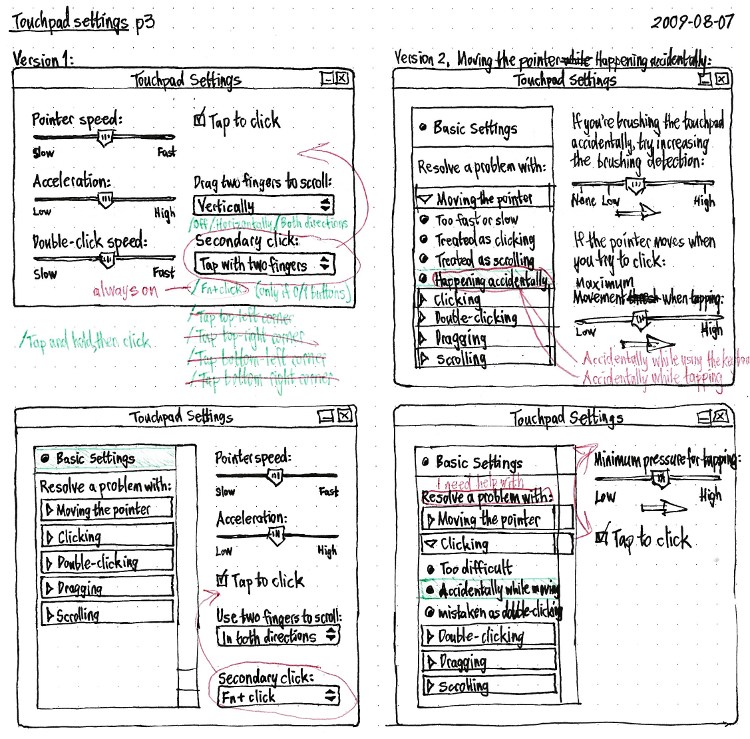 Touchpad settings p3
2009-08-07
Version 1:
Touchpad Settings
Pointer speed:
Slow Fast
Tap to click
Acceleration:
Low High
Drag two fingers to scroll:
Vertically
/Off/Horizontally/Both directions
Double-click speed:
Slow Fast
Secondary click:
Tap with two fingers
always on
/Fn+click (only if 0/1 buttons)
/Tap top left corner
/Tap top right corner
/Tap bottom left corner
/Tap bottom right corner
/Tap and hold, then click
Version 2, Moving the pointer while Happening accidentally:
Touchpad Settings
Basic Settings
Resolve a problem with:
Moving the pointer
Too fast or slow
Treated as clicking
Treated as scrolling
Happening accidentally
Clicking
Double-clicking
Dragging
Scrolling
If you're brushing the touchpad
accidentally, try increasing
the brushing detection:
None Low High
If the pointer moves when
you try to click:
Maximum
Movement when tapping:
Low High
Accidentally while using the keyboa
Accidentally while tapping
Touchpad Settings
Basic Settings
Resolve a problem with:
Moving the pointer
Clicking
Double-clicking
Dragging
Scrolling
Pointer speed:
Slow Fast
Acceleration:
Low High
Tap to click
Use two fingers to scroll:
In both directions
Secondary click:
Fn+ click
Touchpad Settings
Basic Settings
I need help with
Resolve a problem with:
Moving the pointer
Clicking
Too difficult
Accidentally while moving
mistaken as double-clicking
Double-clicking
Dragging
Scrolling
Minimum pressure for tapping:
Low High
Tap to click